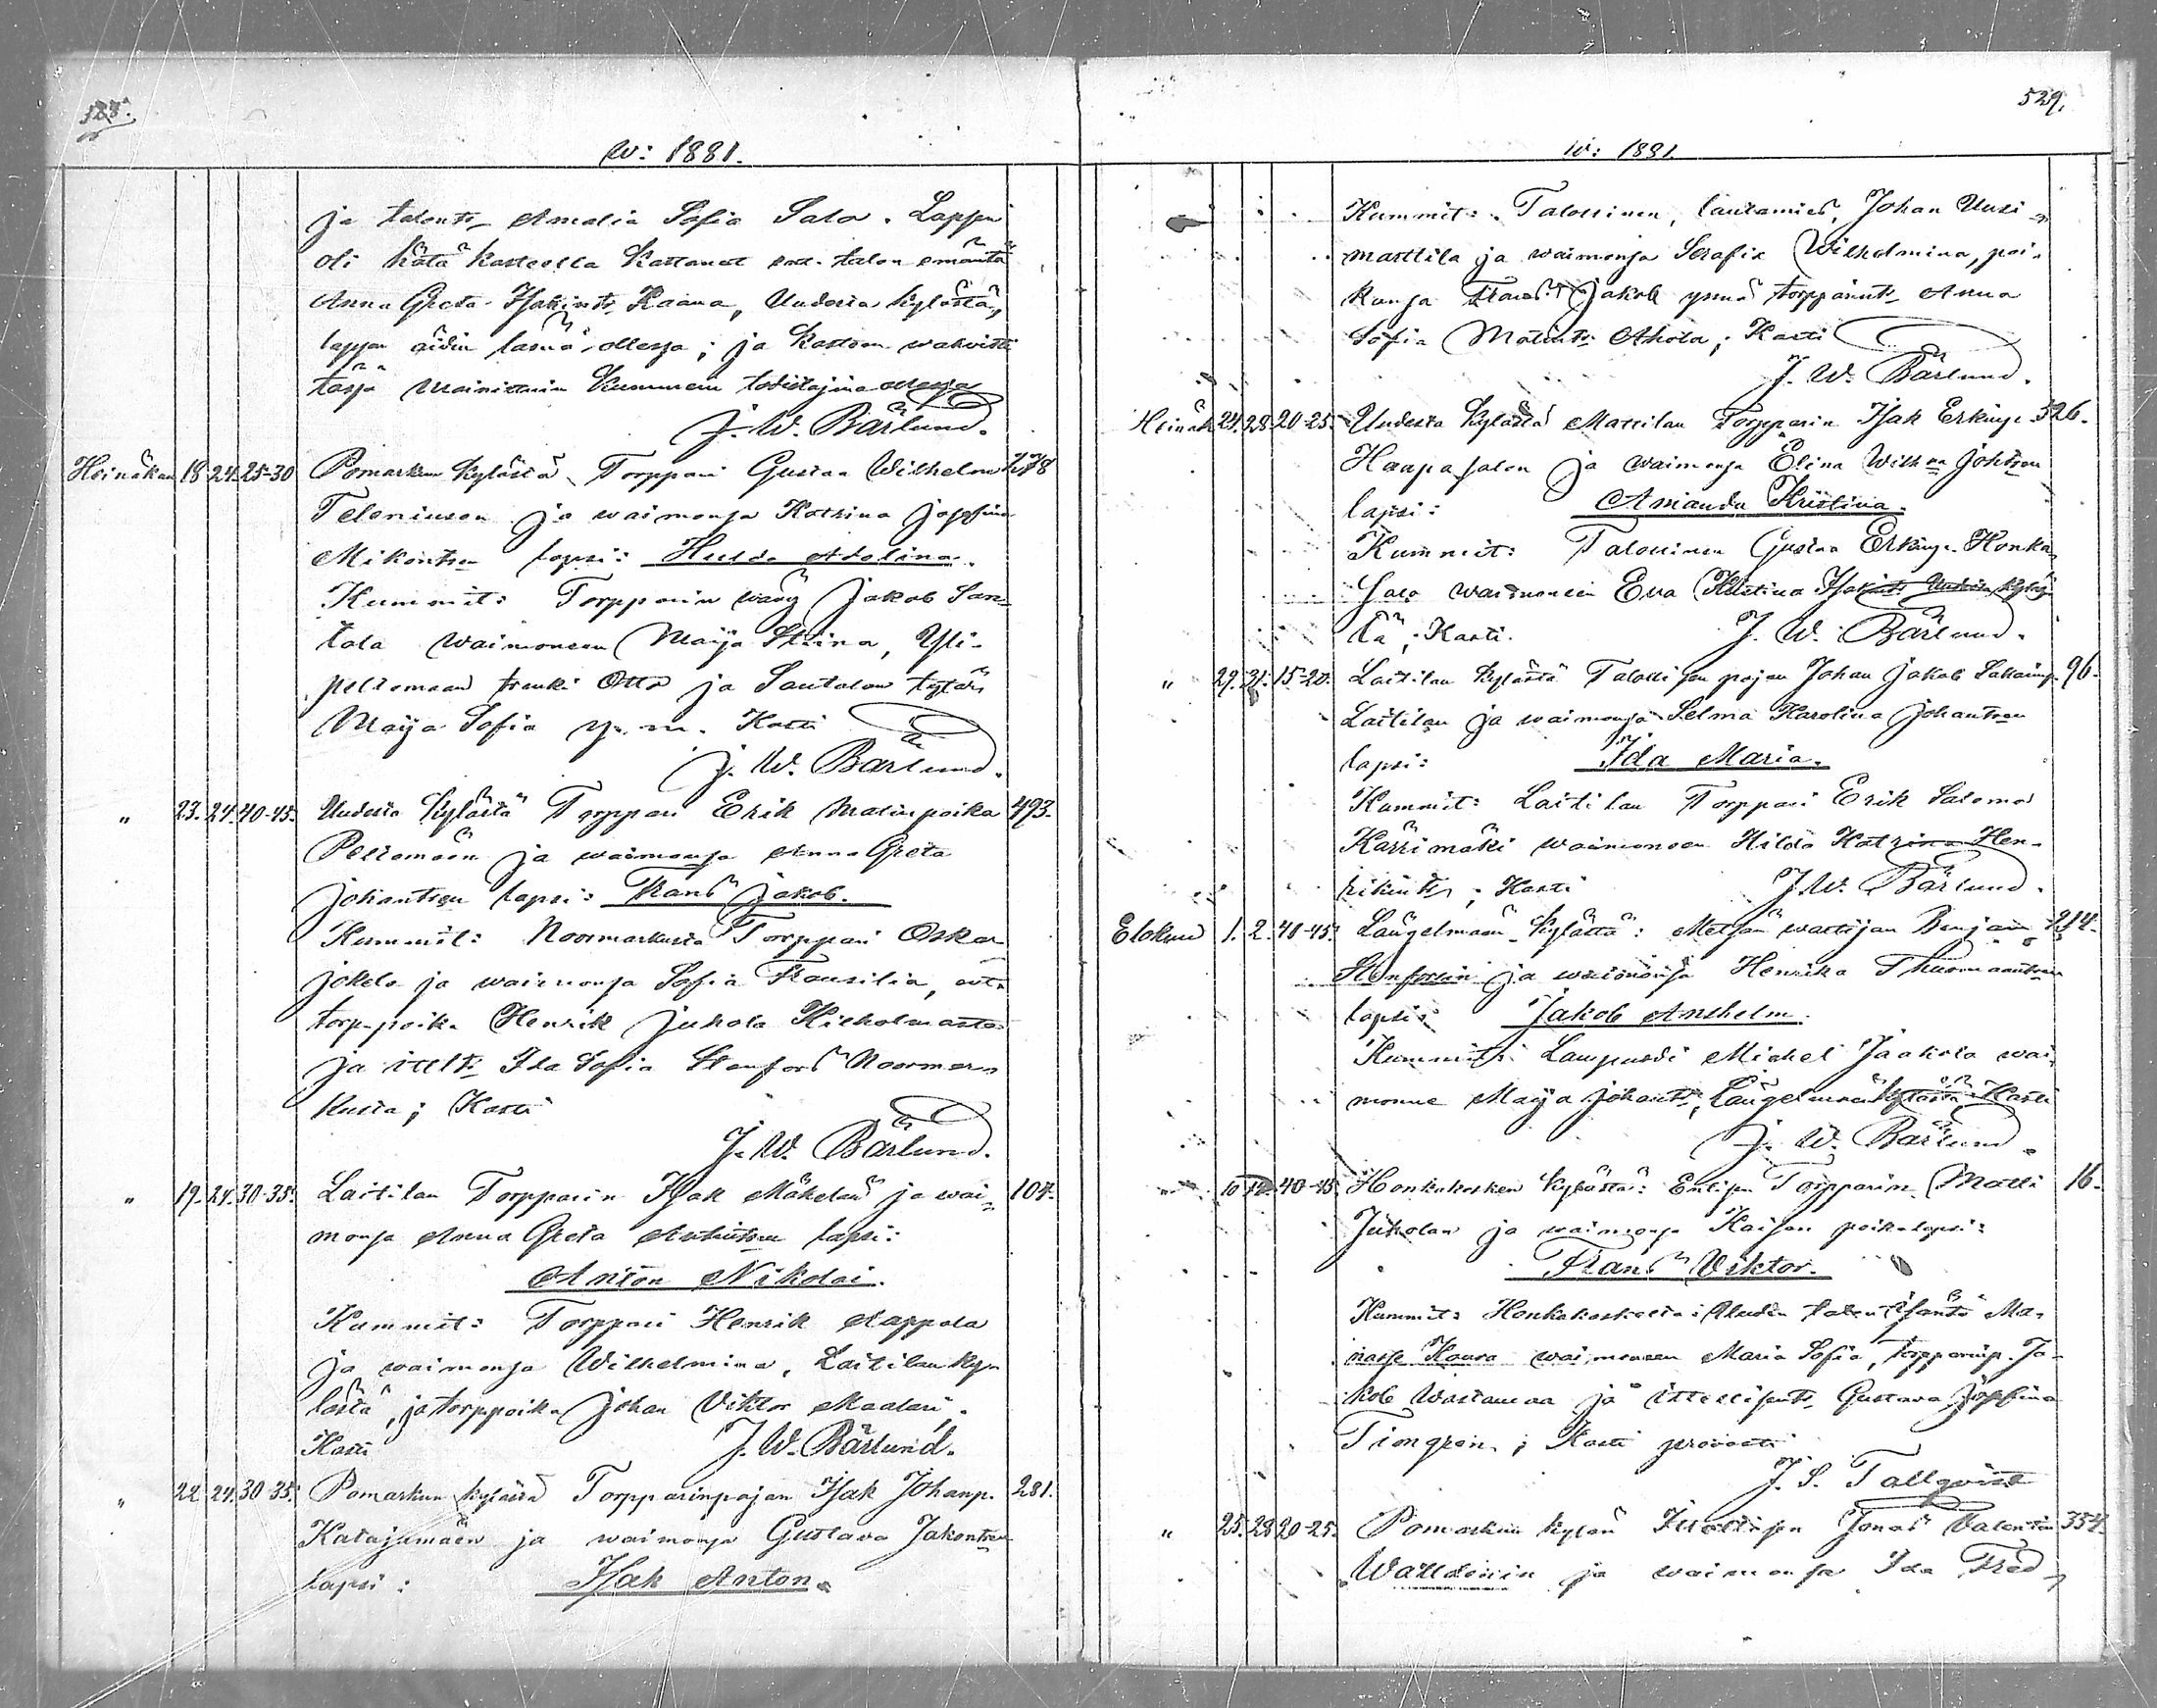 528.
w: 1881.
ja talontr Amalia Sofia Salo. Lapsi
oli hätä kasteella kastanut talon emäntä
Anna Greta Isakintr Kaana, Uudesta kylästä,
lapsen äidin läsnä ollessa; ja kasteen wahvisti
tässä mainittuin kummein todistajina ollessa
J. W. Bärlund.
Heinäkuu 18 24. 25-30 Pomarkun kylästä Torppari Gustaa Wilhelm 278
Teleniuson ja waimonsa Katrina Josefina
Mikontr lapsi: Hulda Adolina.
Kummit: Torpparin wäwy Jakob San-
tala waimoneen Maija Stiina, Yli-
peltomaan trenki Otto ja Santalan tytär
Maija Sofia y. m. Kasti
J. W. Bärlund.
" 23. 24. 40-45. Uudesta kylästä Torppari Erik Matinpoika 493.
Peltomäen ja waimonsa Anna Greta
Johantren lapsi: Frans Jakob.
Kummit: Noormarkusta Torppari Oskar
Jokela ja waimonsa Sofia
torp.poika Henrik Juhola
ja ittltr Ida Sofia Stenfors Noormar-
kusta; Kasti
J. W. Bärlund.
" 19. 24. 30-35. Laitilan Torpparin Isak Mäkelän ja wai- 104.
monsa Anna Greta lapsi:
Anton Nikolai.
Kummit: Torppari Henrik
ja waimonsa Wilhelmina, Laitilan ky-
lästä, ja torppoika Johan Viktor Maalari.
Kasti J. W. Bärlund.
" 22 24. 30-35. Pomarkun kylästä Torpparinpojan Isak Johanp. 281.
Katajamäen ja waimonsa Gustava Jakontren
lapsi: Isak Anton.
529.
w: 1881
Kummit: Talollinen, lautamies, Johan Uusi-
marttila ja waimonsa Serafia Wilhelmina, poi-
kansa Frans Jakob ynnä torpparintr Anna
Sofia Matintr Ahola; Kasti
J. W. Bärlund.
Heinäk 24. 28. 20-25. Uudesta kylästä Mattilan Torpparin Isak Erkinp. 526.
Haapasalon ja waimonsa Elina Wilhna Johtren
lapsi: Amanda Kristina.
Kummit: Talollinen Gustaa Erkinp. Honka-
salo waimoneen Eva Kristina Isakintr Uudesta kyläs-
tä; Kasti. J. W. Bärlund.
" 29. 31. 15-20. Laitilan kylästä Talollisen pojan Johan Jakob 96.
Laitilan ja waimonsa Selma Karolina Johantren
lapsi: Ida Maria.
Kummit: Laitilan Torppari Erik Salomo
Kärrimäki waimoneen Hilda Katrina Hen-
rikintr; Kasti J. W. Bärlund.
Elokuu 1. 2. 40-45. Längelmäen kylästä: Metsän wartijan Benjam 214.
Stenforsin ja waimonsa Henrika Thuomaantren
lapsi: Jakob Anshelm.
Kummit: Lampuodi Mickel Jaakola wai-
monne Maija Johantr, Längelmäen kylästä; Kasti
J. W. Bärlund.
" 10 12. 40-45. Honkakosken kylästä: Entisen Torpparin Matti 16.
Juholan ja waimonsa Kaisan poikalapsi:
Frans Viktor.
Kummit: Honkakoskelta: Uuden talon isäntä Ma-
nasse Koura waimoneen Maria Sofia, torpparinp. Ja-
kob Wastamaa ja ittellisentr Gustava Josefina
Tiongren; Kasti provasti
J. S. Tallqvist
" 25. 28 20-25. Pomarkun kylän Itsellisen Jonas Valentin 354.
ja waimonsa Ida Fred-